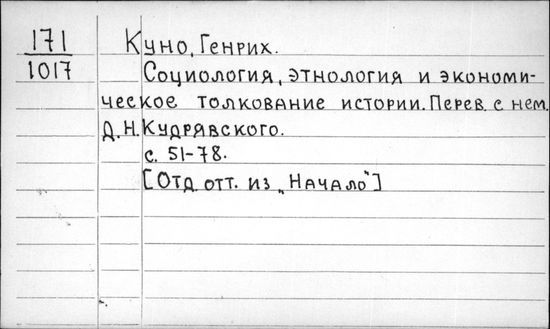 171
1017
Куно, Генрих.
Социология, этнология и экономи-
ческое толкование истории. Перев. с нем.
Д.Н. Кудрявского.
с. 51-78.
[Отд. отт. из „Начало"]